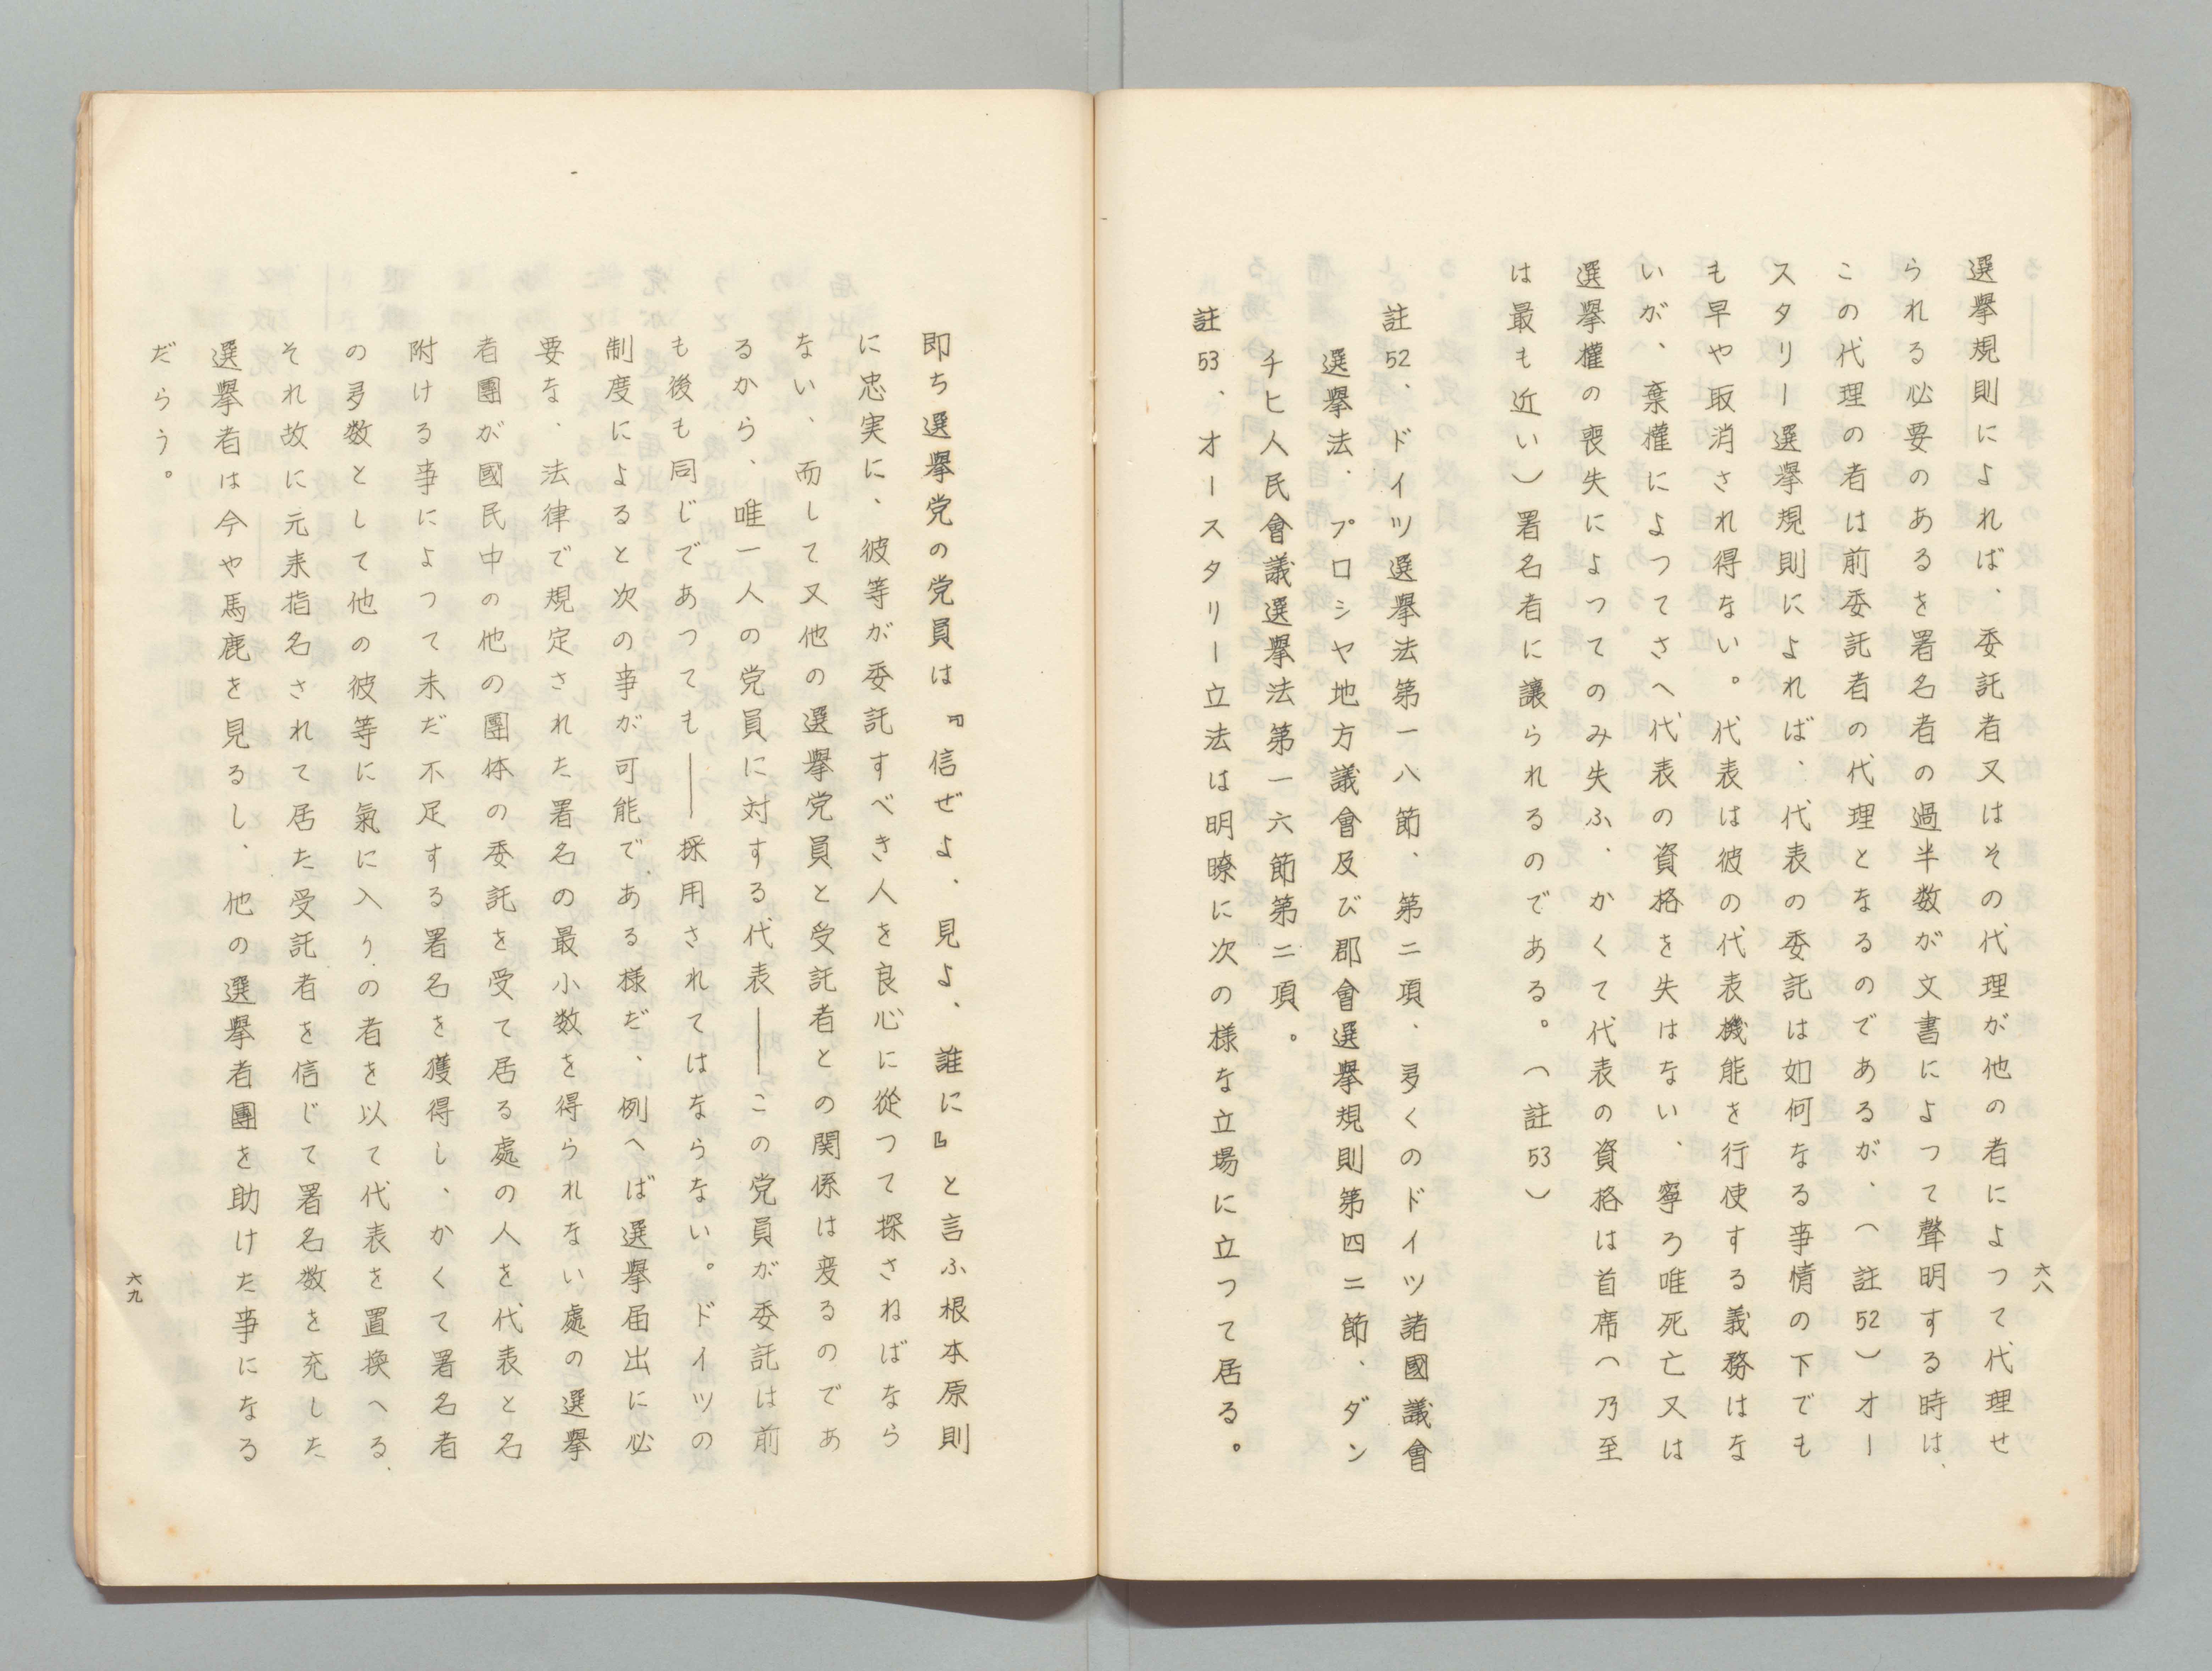 六八
選擧規則によれば、委託者又はその代理が他の者によつて代理せ
られる必要のあるを署名者の過半数が文書によつて聲明する時は、
この代理の者は前委託者の代理となるのであるが、（註52）オー
スタリー選擧規則によれば、代表の委託は如何なる事情の下でも
も早や取消され得ない。代表は彼の代表機能を行使する義務はな
いが、棄權によつてさへ代表の資格を失はない、寧ろ唯死亡又は
選擧權の喪失によつてのみ失ふ、かくて代表の資格は首席（乃至
は最も近い）署名者に讓られるのである。（註53）
註52、ドイツ選擧法第一八節、第二項、多くのドイツ諸國議會
選擧法、プロシヤ地方議會及び郡會選擧規則第四二節、ダン
チヒ人民會議選擧法第一六節第二項。
註53、オースタリー立法は明瞭に次の様な立場に立つて居る。
即ち選擧党の党員は『信ぜよ、見よ、誰に』と言ふ根本原則
に忠実に、彼等が委託すべき人を良心に從つて探さねばなら
ない、而して又他の選擧党員と受託者との関係は変るのであ
るから、唯一人の党員に対する代表――この党員が委託は前
も後も同じであつても――採用されてはならない。ドイツの
制度によると次の事が可能である様だ、例へば選擧届出に必
要な、法律で規定された署名の最小数を得られない處の選擧
者團が國民中の他の團体の委託を受て居る處の人を代表と名
附ける事によつて未だ不足する署名を獲得し、かくて署名者
の多数として他の彼等に氣に入りの者を以て代表を置換へる、
それ故に元来指名されて居た受託者を信じて署名数を充した
選擧者は今や馬鹿を見るし、他の選擧者團を助けた事になる
だらう。
六九